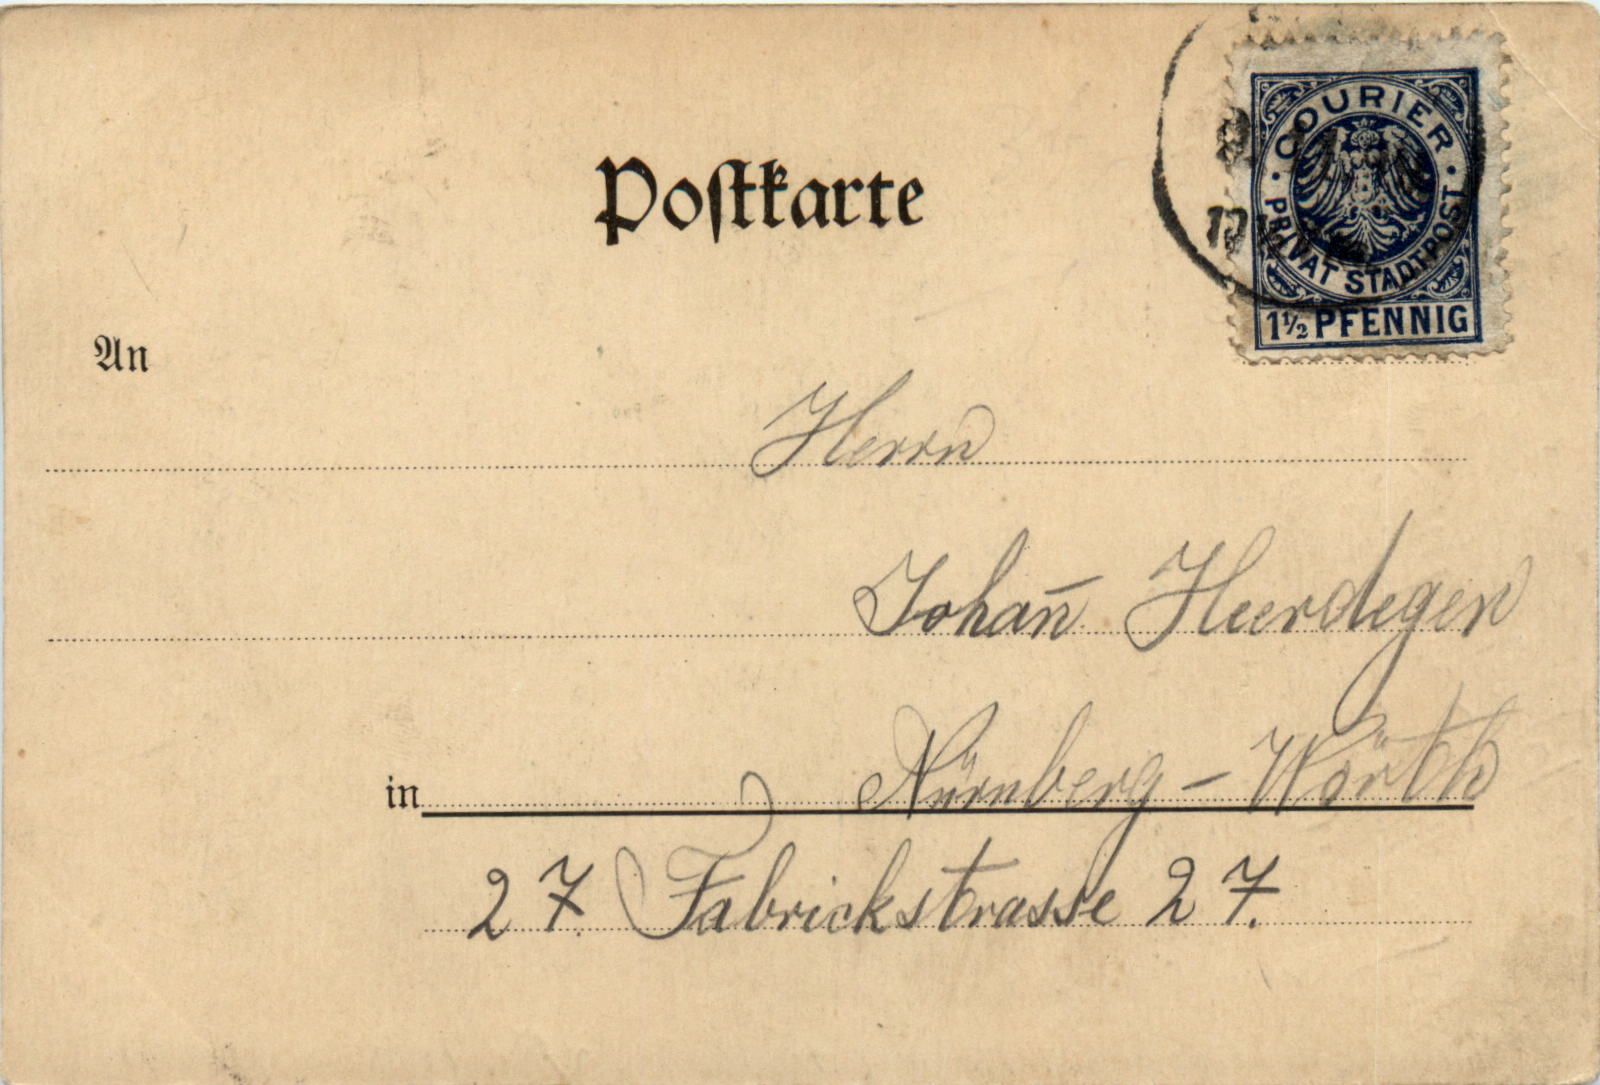 Postkarte
COURIER
PRIVAT STADTPOST
1½ PFENNIG
An
Herrn
Johan̄ Heerdegen
in Nürnberg - Wörth
27. Fabrickstrasse 27.